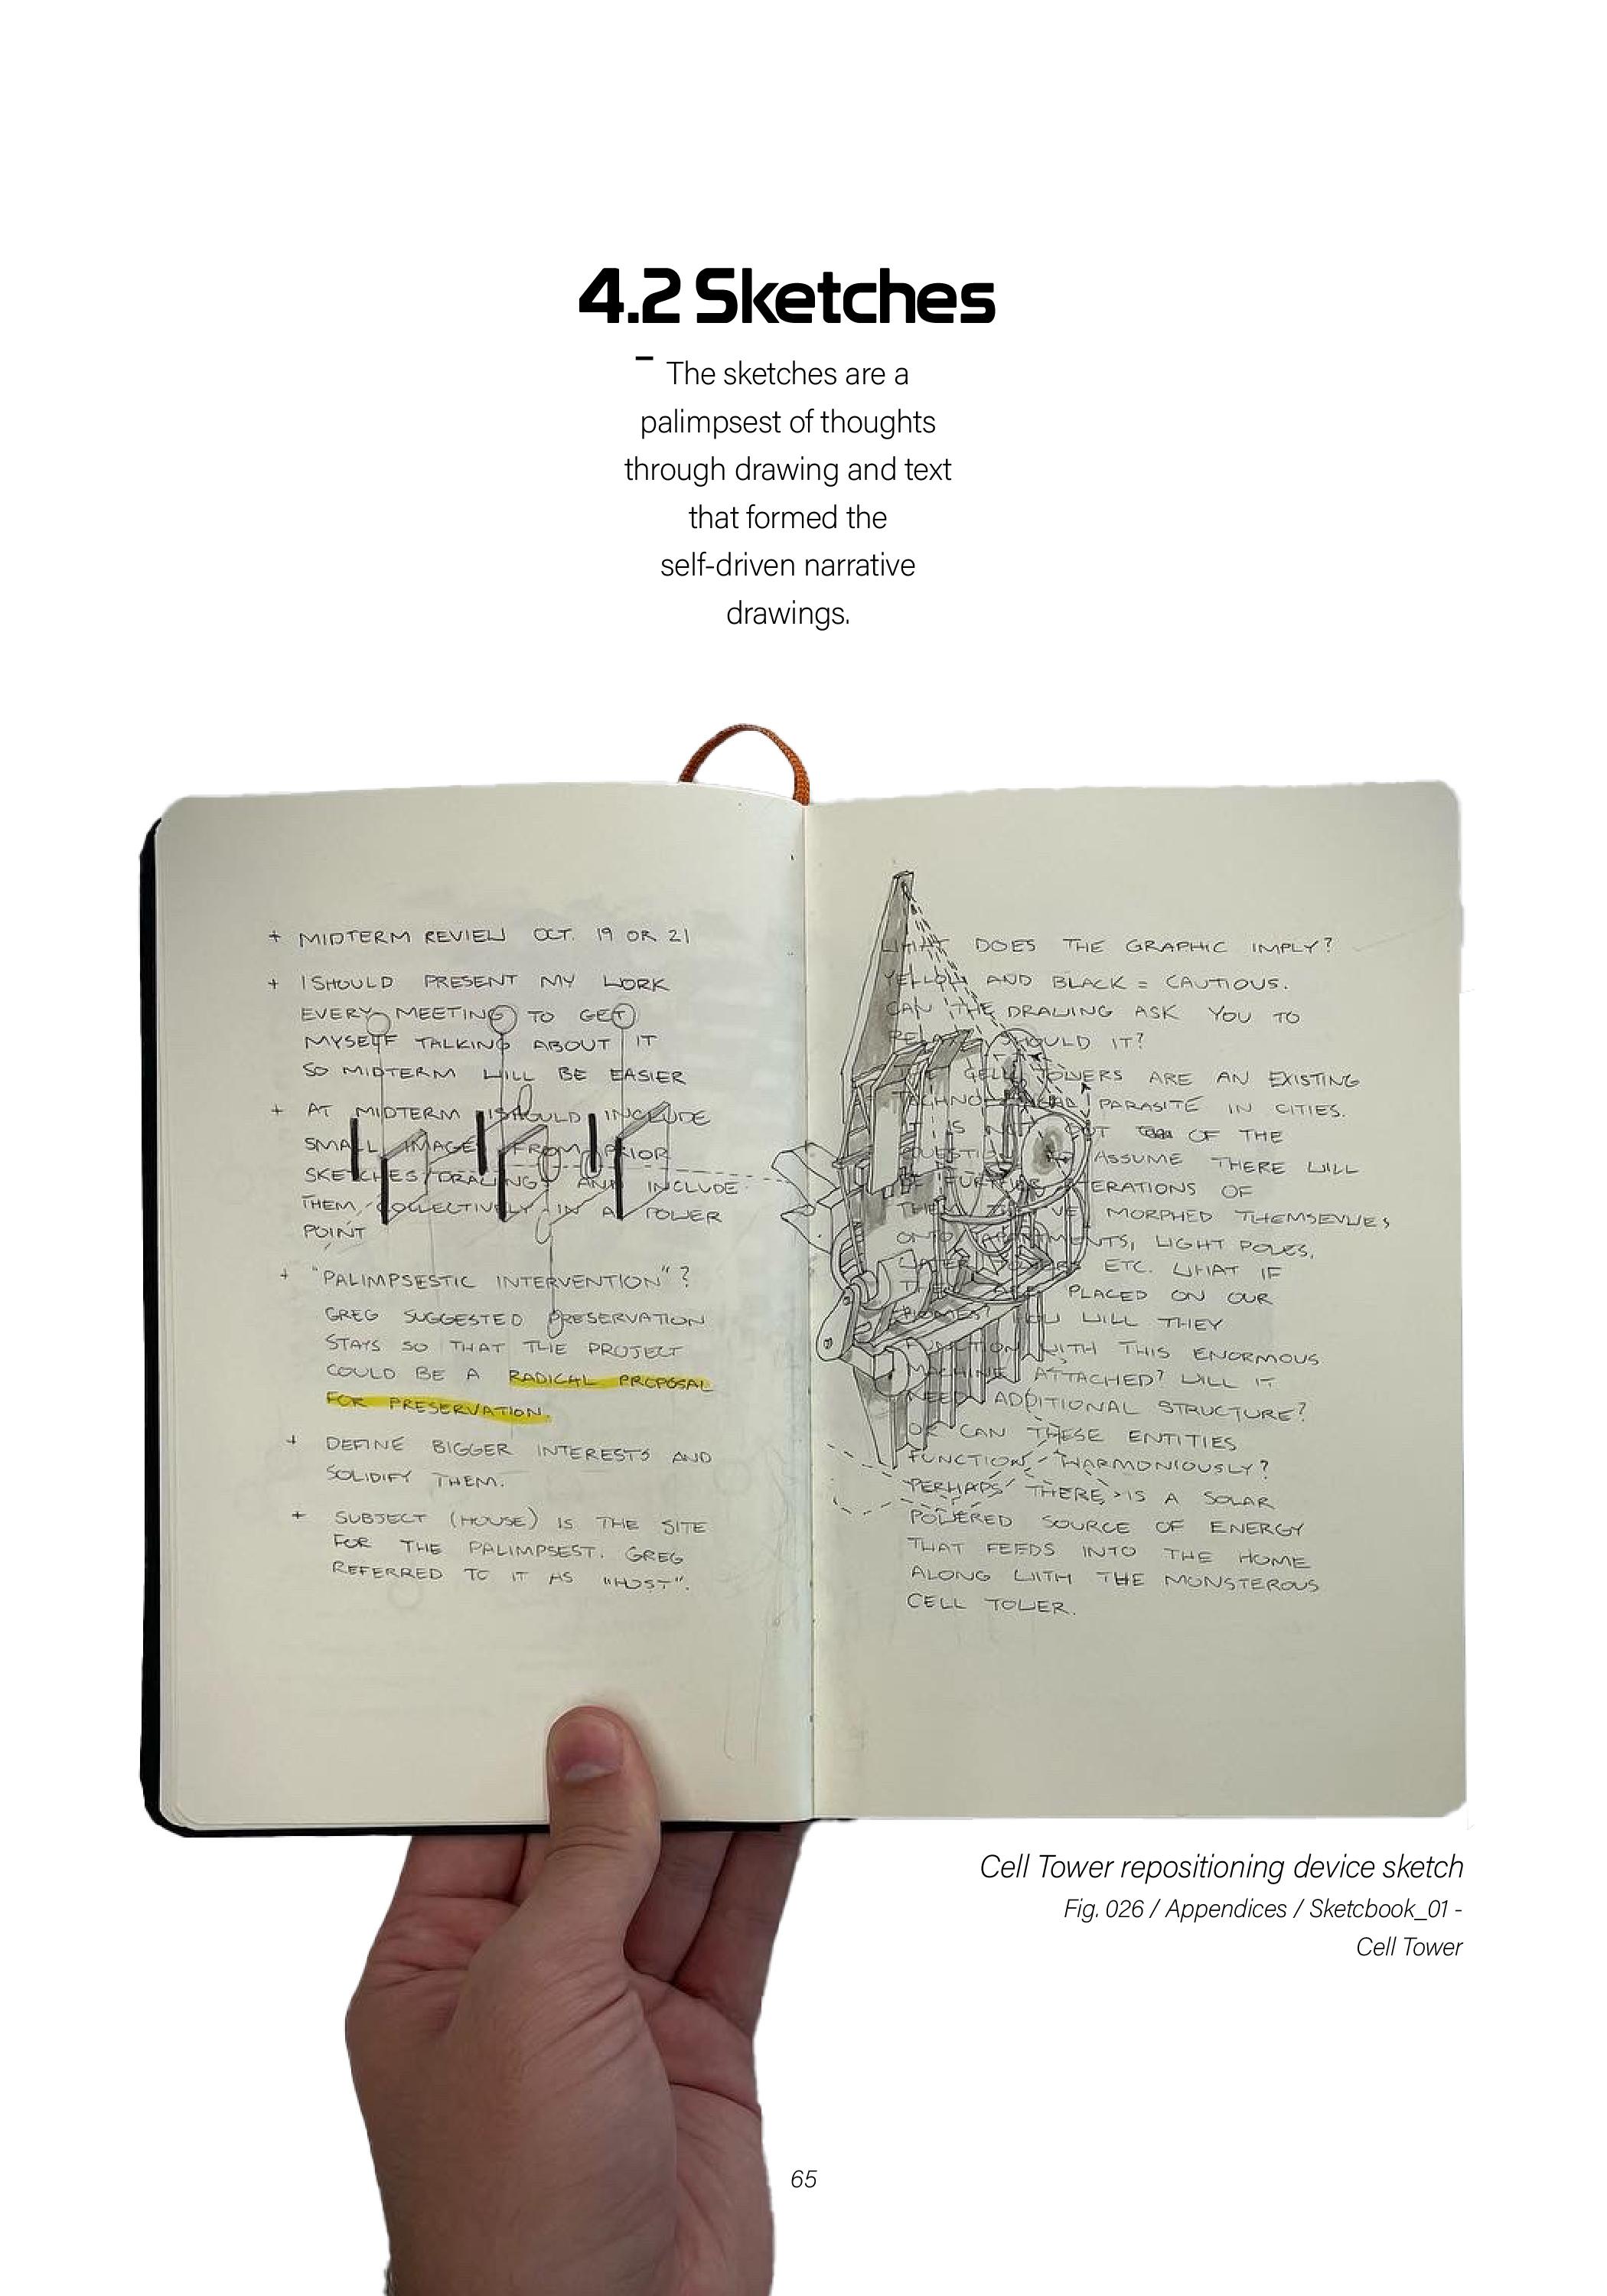 4.2 Sketches
–
The sketches are a
palimpsest of thoughts
through drawing and text
that formed the
self-driven narrative
drawings.
+ MIDTERM REVIEW OCT. 19 OR 21
+ I SHOULD PRESENT MY WORK
EVERY MEETING TO GET
MYSELF TALKING ABOUT IT
SO MIDTERM WILL BE EASIER
+ AT MIDTERM I SHOULD INCLUDE
SMALL IMAGES FROM PRIOR
SKETCHES/DRAWINGS AND INCLUDE
THEM COLLECTIVELY IN A POWER
POINT
+ "PALIMPSESTIC INTERVENTION"?
GREG SUGGESTED PRESERVATION
STAYS SO THAT THE PROJECT
COULD BE A RADICAL PROPOSAL
FOR PRESERVATION.
+ DEFINE BIGGER INTERESTS AND
SOLIDIFY THEM.
+ SUBJECT (HOUSE) IS THE SITE
FOR THE PALIMPSEST. GREG
REFERRED TO IT AS "HOST".
WHAT DOES THE GRAPHIC IMPLY?
YELLOW AND BLACK = CAUTIOUS.
CAN THE DRAWING ASK YOU TO
SHOULD IT?
CELL TOWERS ARE AN EXISTING
PARASITE IN CITIES.
IT IS NOT OUT OF THE
ASSUME THERE WILL
BE FURTHER ITERATIONS OF
MORPHED THEMSELVES
ONTO APARTMENTS, LIGHT POLES,
WATER TOWERS ETC. WHAT IF
PLACED ON OUR
HOMES? HOW WILL THEY
FUNCTION WITH THIS ENORMOUS
MACHINE ATTACHED? WILL IT
NEED ADDITIONAL STRUCTURE?
OR CAN THESE ENTITIES
FUNCTION HARMONIOUSLY?
PERHAPS THERE IS A SOLAR
POWERED SOURCE OF ENERGY
THAT FEEDS INTO THE HOME
ALONG WITH THE MONSTEROUS
CELL TOWER.
Cell Tower repositioning device sketch
Fig. 026 / Appendices / Sketcbook_01 -
Cell Tower
65